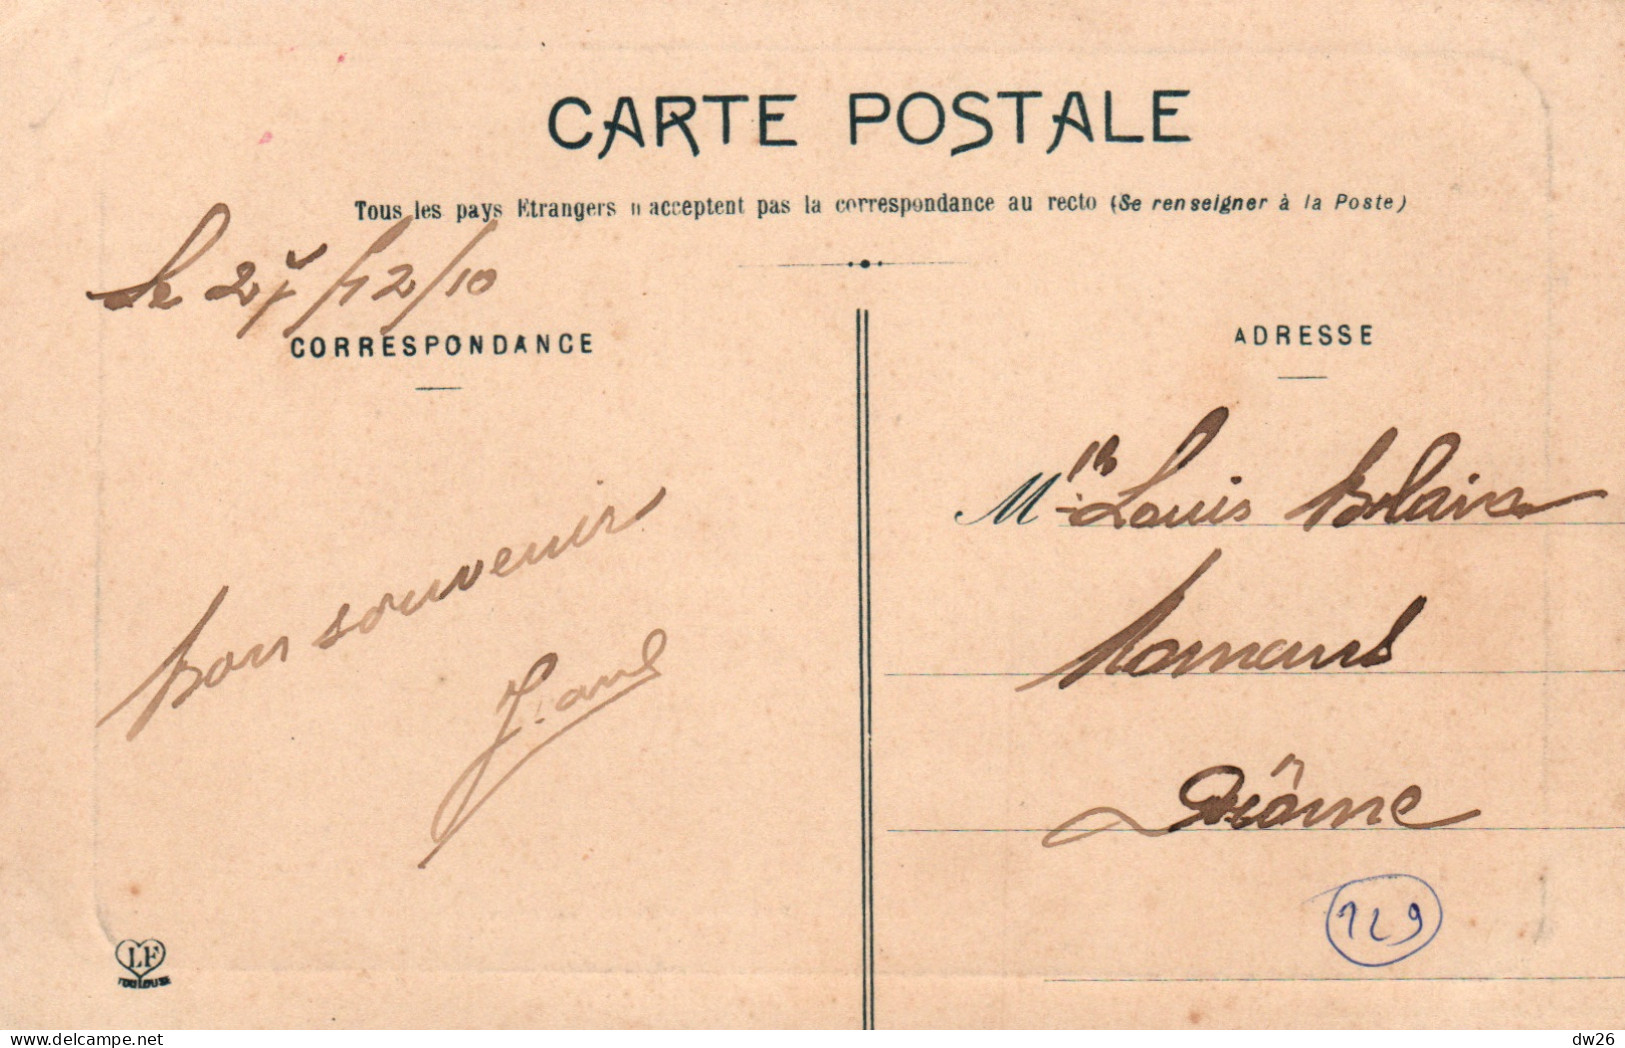 CARTE POSTALE
Tous les pays Etrangers n'acceptent pas la correspondance au recto (Se renseigner à la Poste)
Le 27/12/10
CORRESPONDANCE
Bon souvenir
ADRESSE
Mr Louis Blain
Romans
Drôme
129
LF
TOULOUSE
delcampe.net
dw26